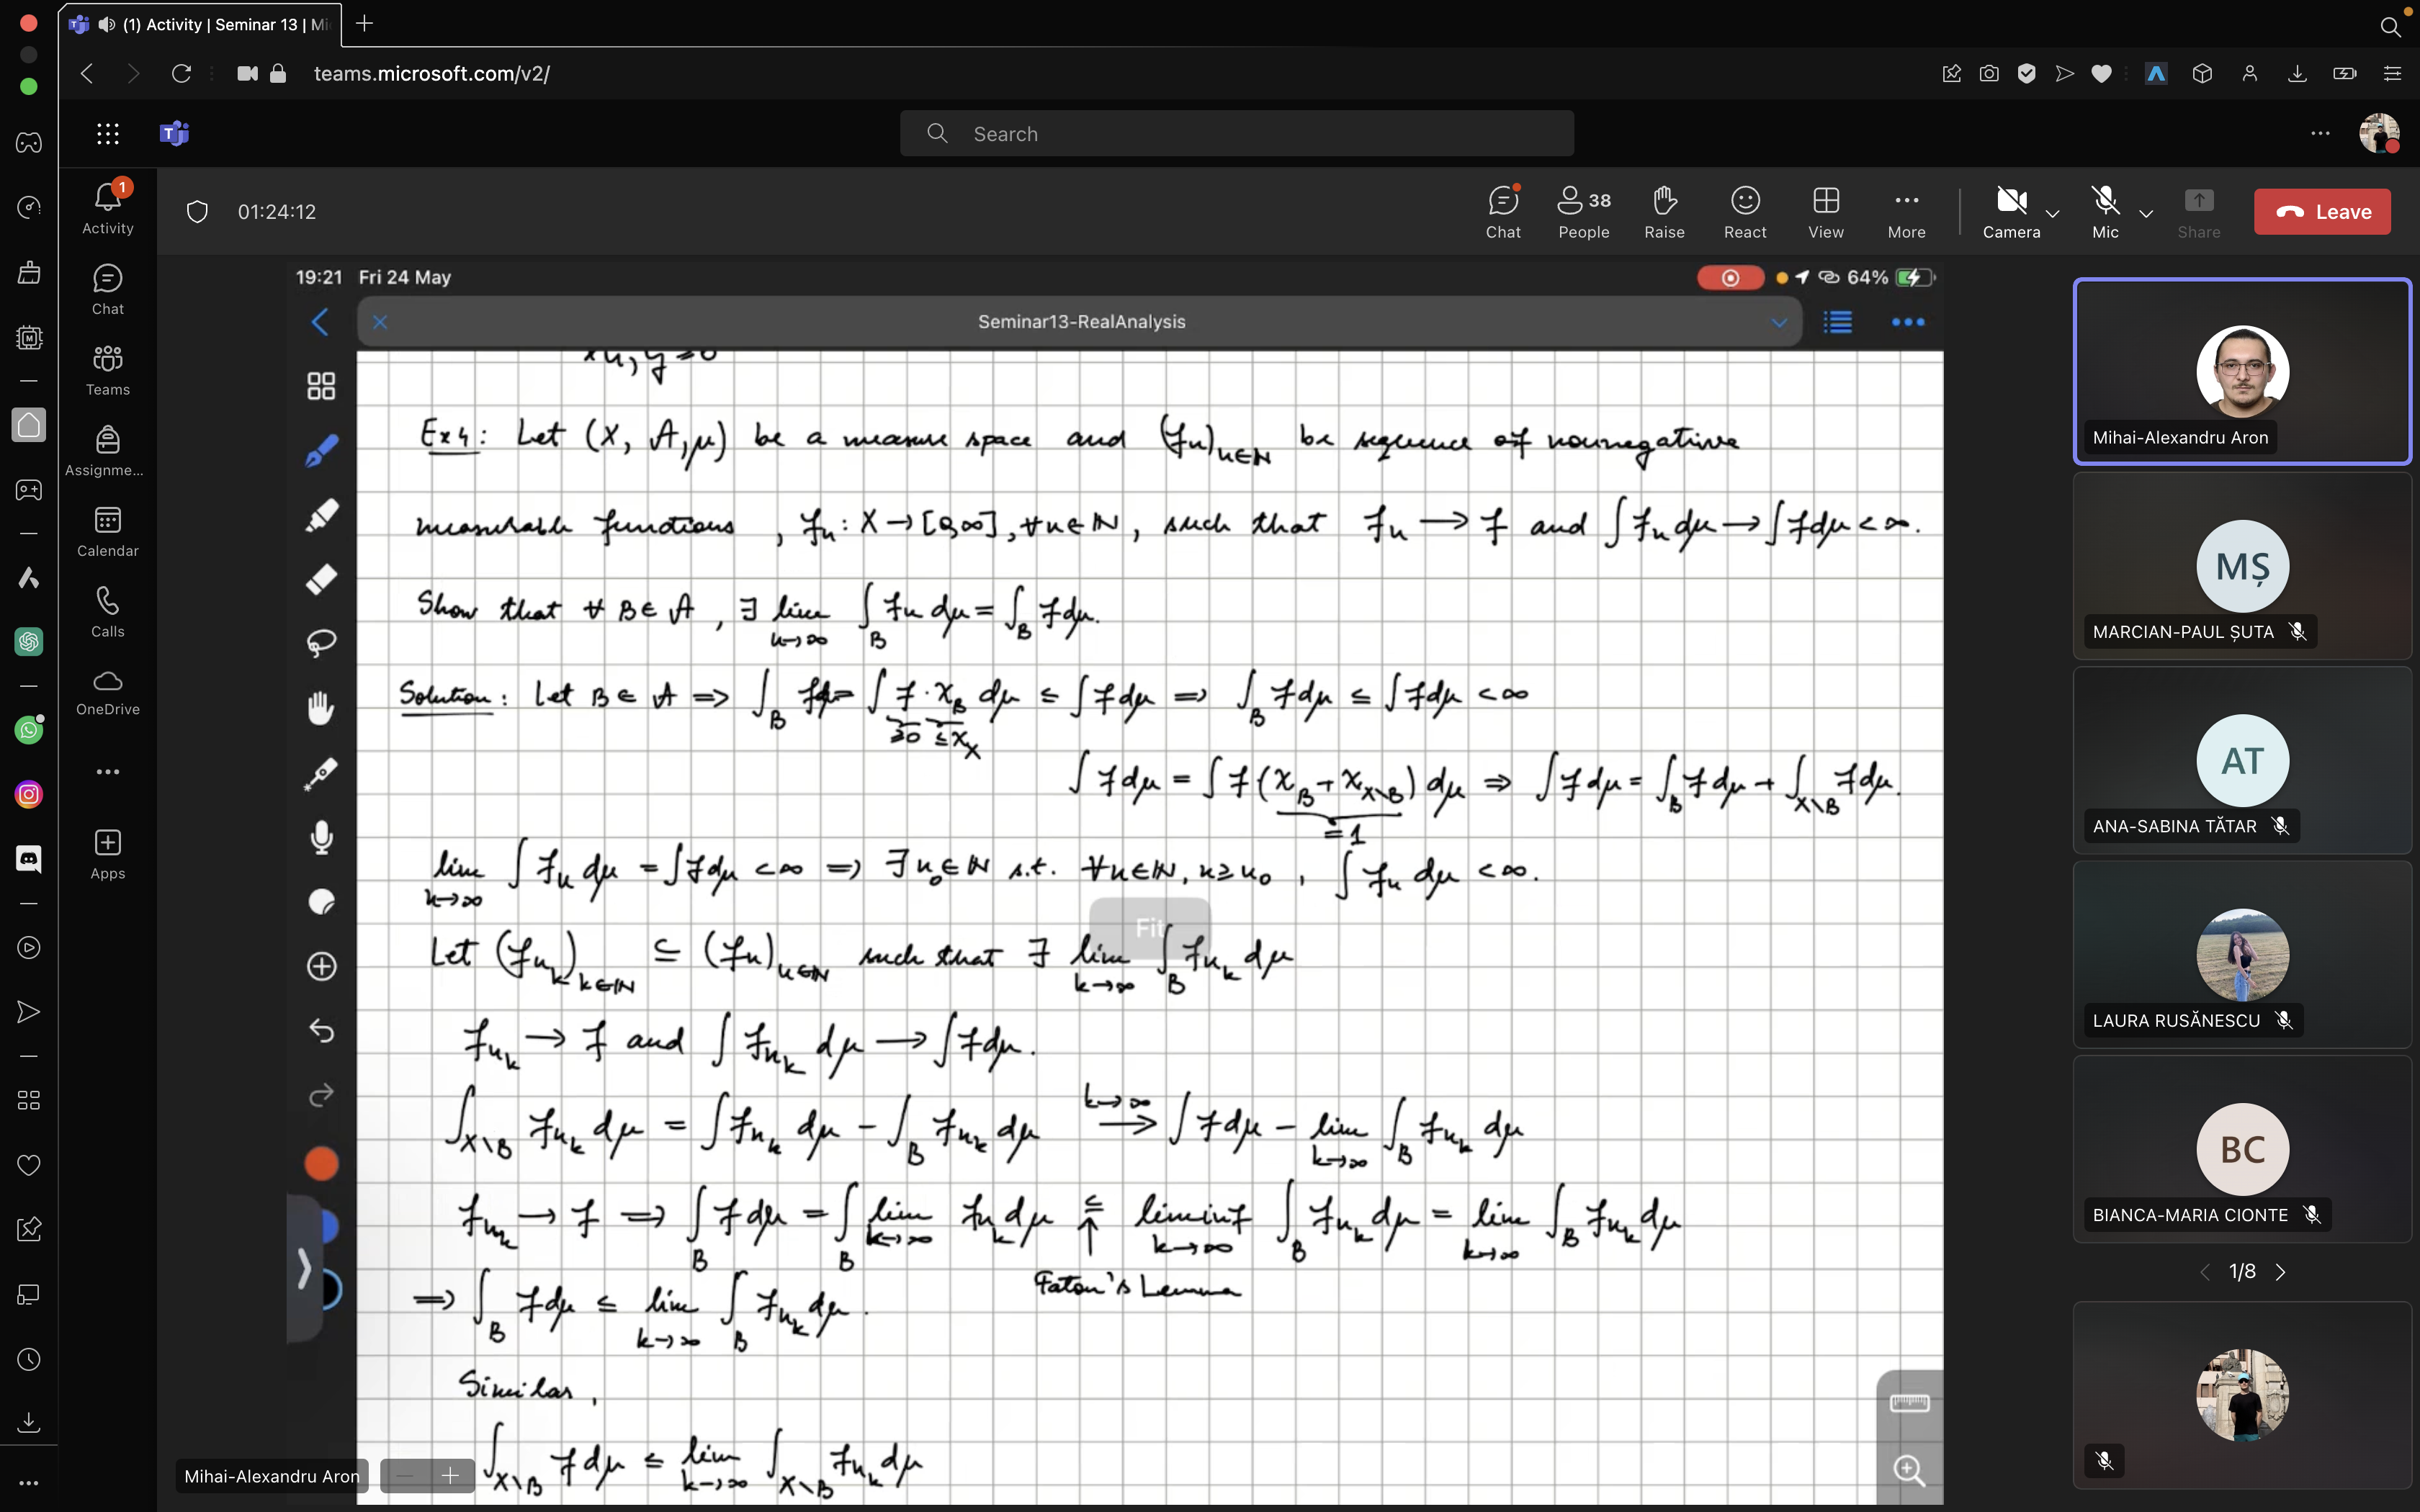 (1) Activity | Seminar 13 | Mi
teams.microsoft.com/v2/
Search
01:24:12
Chat
38
People
Raise
React
View
More
Camera
Mic
Share
Leave
1
Activity
Chat
Teams
Assignme...
Calendar
Calls
OneDrive
Apps
19:21 Fri 24 May
64%
Seminar13-RealAnalysis
x_n, y ≥ 0
Ex 4: Let (X, A, μ) be a measure space and (f_n)_{n∈ℕ} be sequence of nonnegative
measurable functions, f_n : X → [0,∞], ∀n∈ℕ, such that f_n → f and ∫ f_n dμ → ∫ f dμ < ∞.
Show that ∀ B ∈ A, ∃ lim_{n→∞} ∫_B f_n dμ = ∫_B f dμ.
Solution: Let B ∈ A ⇒ ∫_B f dμ = ∫ f · χ_B dμ ≤ ∫ f dμ ⇒ ∫_B f dμ ≤ ∫ f dμ < ∞
≥0 ≤ χ_X
∫ f dμ = ∫ f (χ_B + χ_{X\B}) dμ ⇒ ∫ f dμ = ∫_B f dμ + ∫_{X\B} f dμ.
= 1
lim_{n→∞} ∫ f_n dμ = ∫ f dμ < ∞ ⇒ ∃ n_0 ∈ ℕ s.t. ∀n∈ℕ, n ≥ n_0, ∫ f_n dμ < ∞.
Fit
Let (f_{n_k})_{k∈ℕ} ⊆ (f_n)_{n∈ℕ} such that ∃ lim_{k→∞} ∫_B f_{n_k} dμ
f_{n_k} → f and ∫ f_{n_k} dμ → ∫ f dμ.
∫_{X\B} f_{n_k} dμ = ∫ f_{n_k} dμ − ∫_B f_{n_k} dμ →^{k→∞} ∫ f dμ − lim_{k→∞} ∫_B f_{n_k} dμ
f_{n_k} → f ⇒ ∫_B f dμ = ∫_B lim_{k→∞} f_{n_k} dμ ≤ liminf_{k→∞} ∫_B f_{n_k} dμ = lim_{k→∞} ∫_B f_{n_k} dμ
↑
Fatou's Lemma
⇒ ∫_B f dμ ≤ lim_{k→∞} ∫_B f_{n_k} dμ.
Similar,
∫_{X\B} f dμ ≤ lim_{k→∞} ∫_{X\B} f_{n_k} dμ
Mihai-Alexandru Aron
Mihai-Alexandru Aron
MȘ
MARCIAN-PAUL ȘUTA
AT
ANA-SABINA TĂTAR
LAURA RUSĂNESCU
BC
BIANCA-MARIA CIONTE
1/8